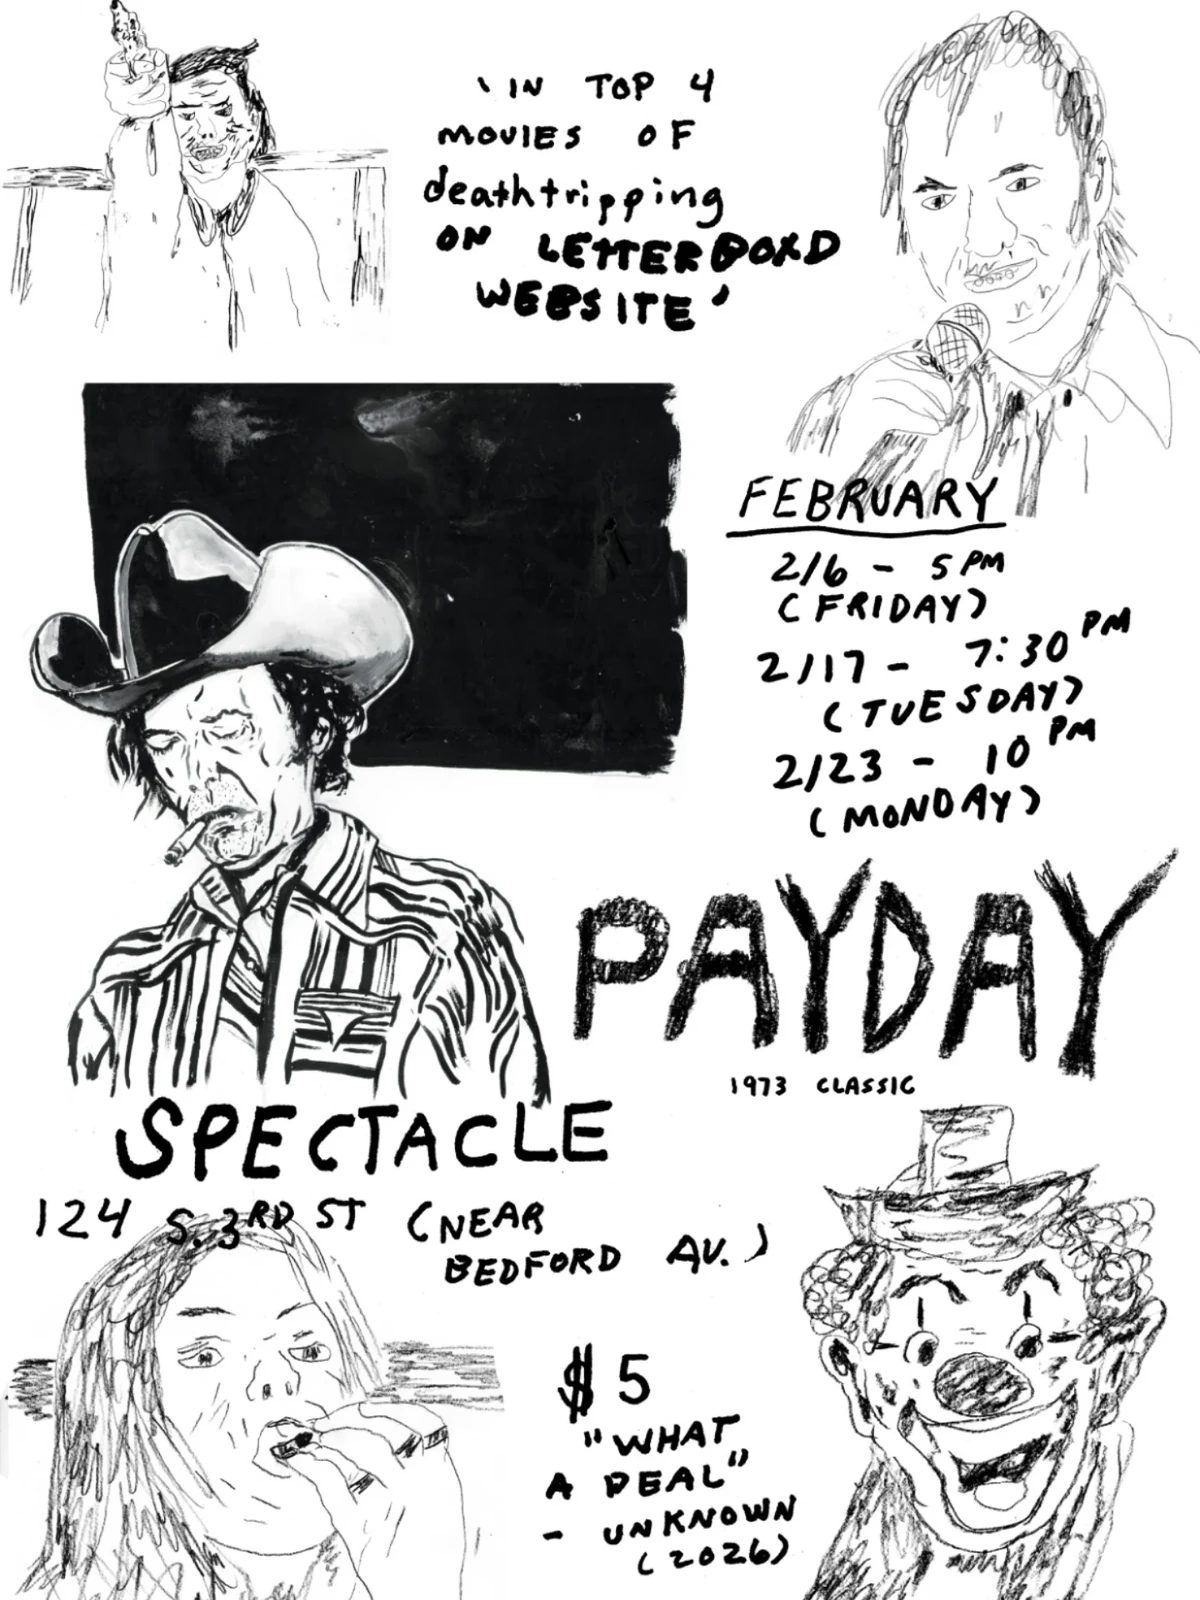 'IN TOP 4
MOVIES OF
deathtripping
ON LETTERBOXD
WEBSITE'
FEBRUARY
2/6 - 5 PM
(FRIDAY)
2/17 - 7:30 PM
(TUESDAY)
2/23 - 10 PM
(MONDAY)
PAYDAY
1973 CLASSIC
SPECTACLE
124 S. 3RD ST (NEAR
BEDFORD AV.)
$5
"WHAT
A DEAL"
- UNKNOWN
(2026)